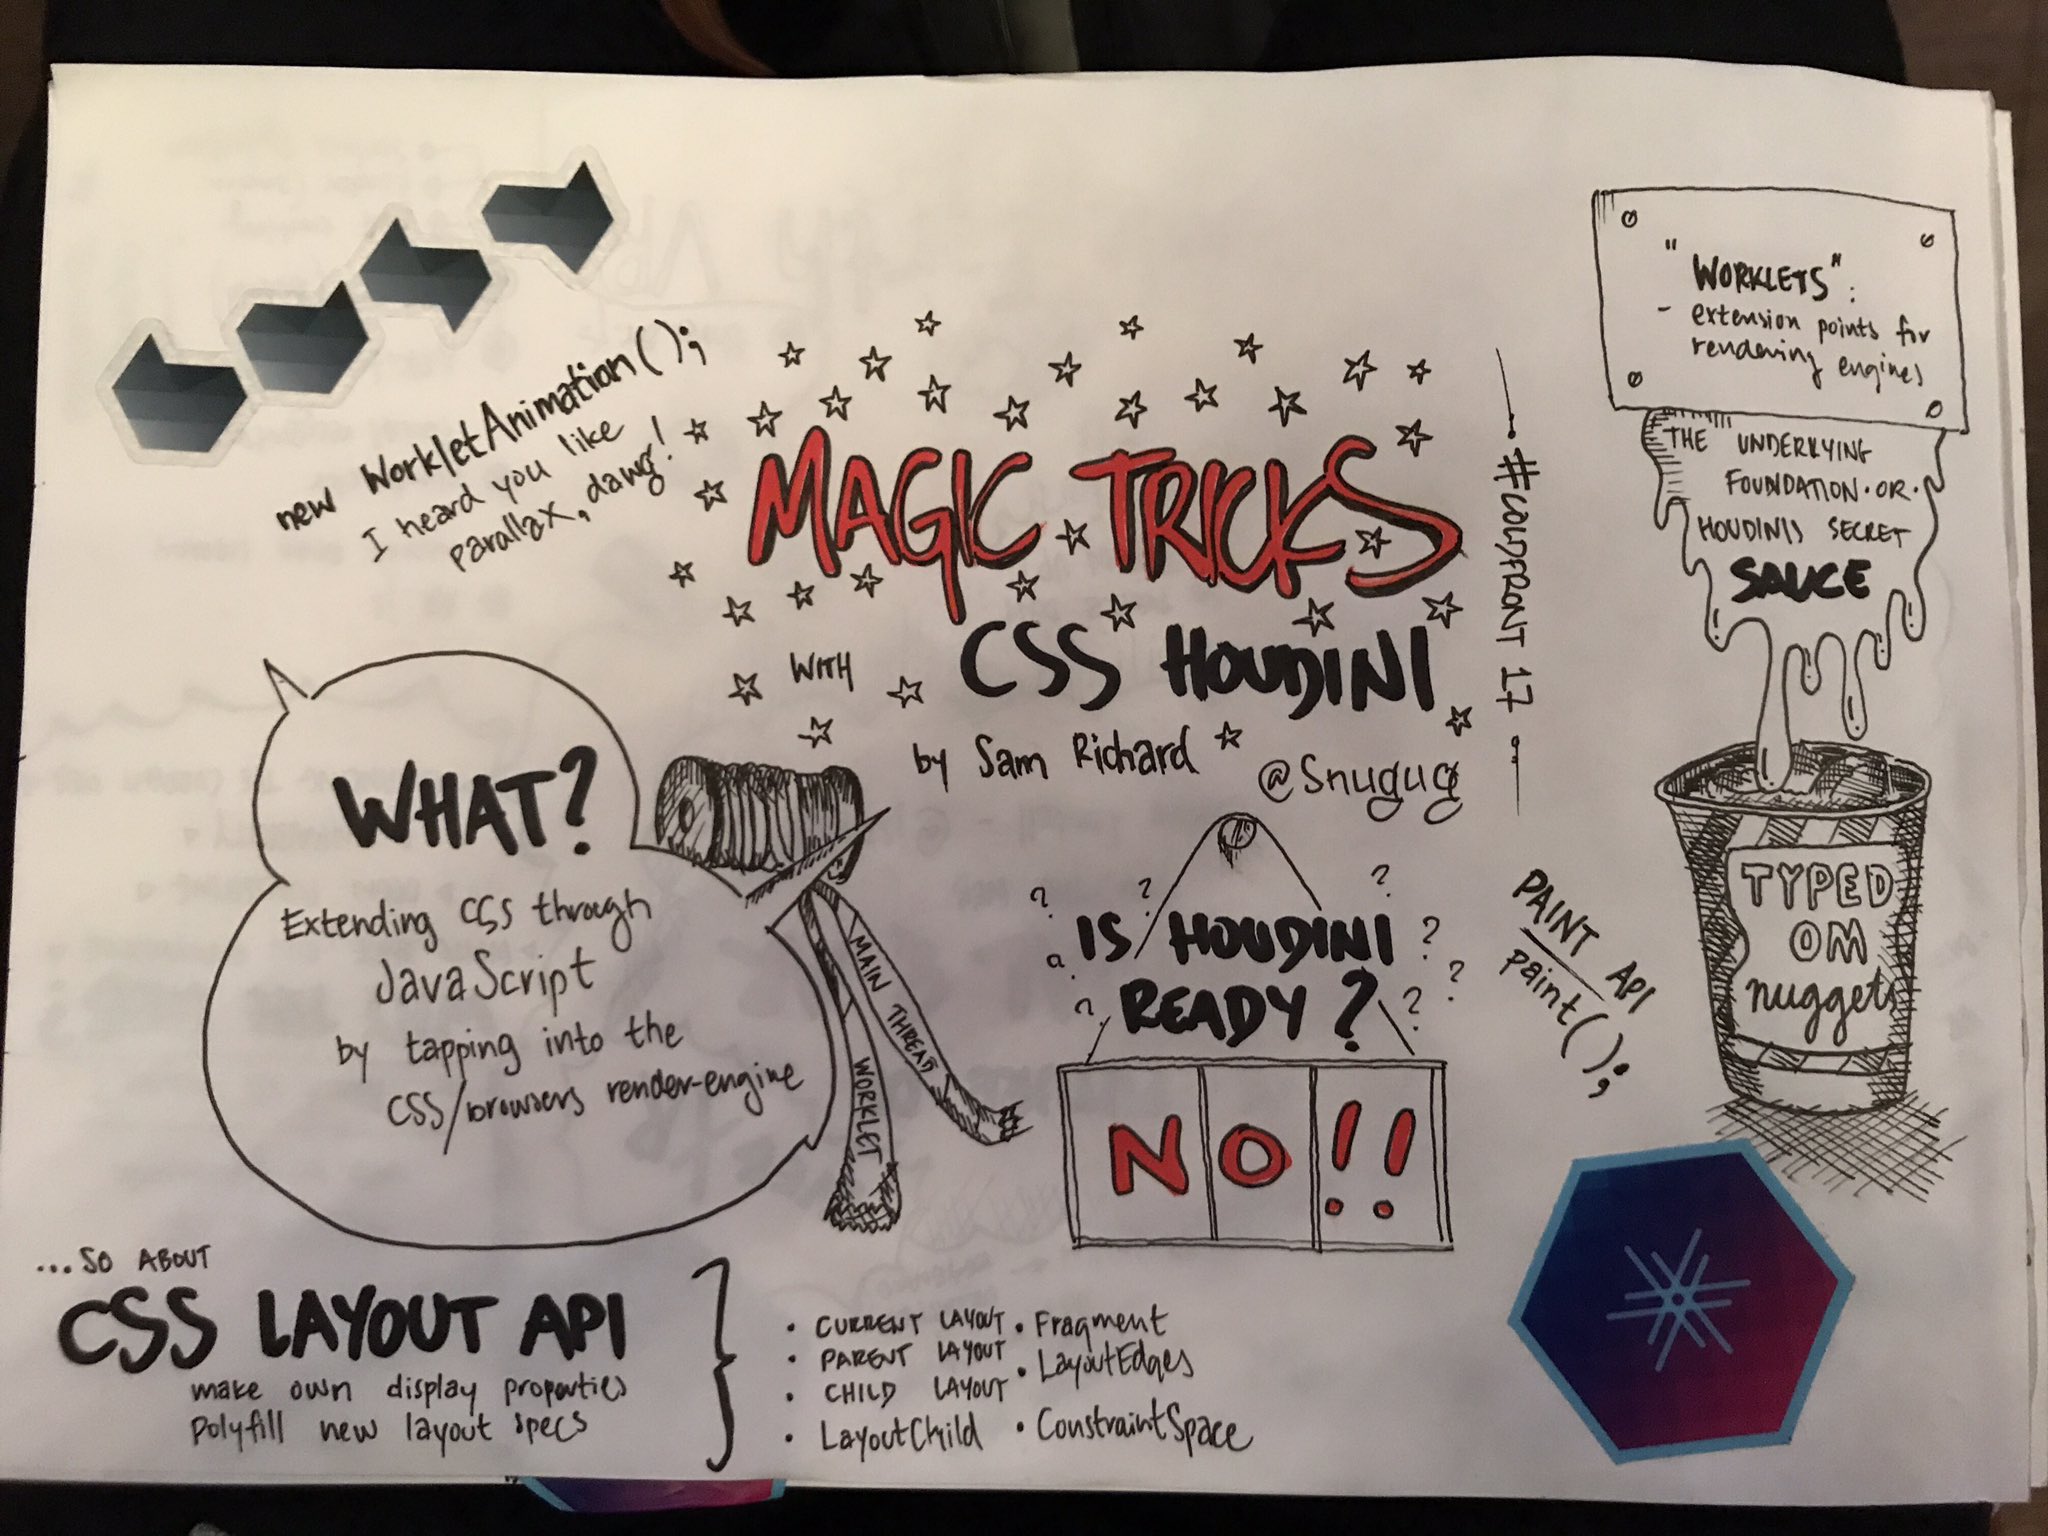 new WorkletAnimation();
I heard you like
parallax, dawg!
MAGIC TRICKS
WITH CSS HOUDINI
by Sam Richard
@Snugug
#COLDFRONT 17
"WORKLETS":
- extension points for
rendering engines
THE UNDERLYING
FOUNDATION·OR·
HOUDINIS SECRET
SAUCE
TYPED
OM
nuggets
WHAT?
Extending CSS through
JavaScript
by tapping into the
CSS/browsers render-engine
MAIN THREAD
WORKLET
? ? ? ? ? ? ? ? ?
IS HOUDINI
READY?
NO!!
PAINT API
paint();
...SO ABOUT
CSS LAYOUT API
make own display properties
polyfill new layout specs
}
• CURRENT LAYOUT
• PARENT LAYOUT
• CHILD LAYOUT
• LayoutChild
• Fragment
• LayoutEdges
• ConstraintSpace